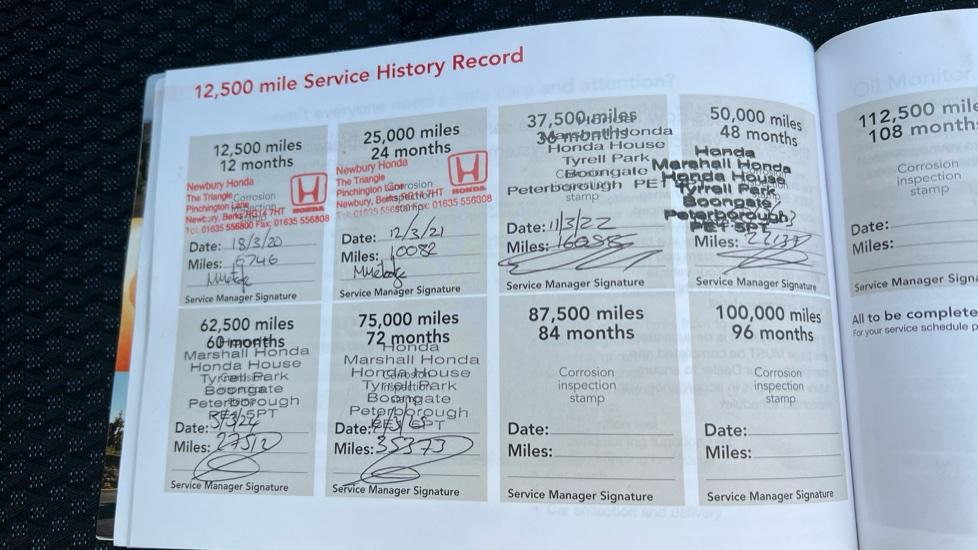 12,500 mile Service History Record
12,500 miles
12 months
Newbury Honda
The Triangle
Pinchington Lane
Newbury, Berks RG14 7HT
Tel: 01635 556800 Fax: 01635 556808
HONDA
Corrosion
inspection
stamp
Date: 18/3/20
Miles: 6746
Service Manager Signature
25,000 miles
24 months
Newbury Honda
The Triangle
Pinchington Lane
Newbury, Berks RG14 7HT
01635 556308
HONDA
Corrosion
inspection
stamp
Date: 12/3/21
Miles: 10082
Service Manager Signature
37,500 miles
36 months
Marshall Honda
Honda House
Tyrell Park
Boongate
Peterborough PE1
stamp
Date: 11/3/22
Miles:
Service Manager Signature
50,000 miles
48 months
Honda
Marshall Honda
Honda House
Tyrrell Park
Boongate
Peterborough
PE1 5PT
Miles:
Service Manager Signature
62,500 miles
60 months
Marshall Honda
Honda House
Tyrrell Park
Boongate
Peterborough
PE1 5PT
Date: 5/3/24
Miles: 27512
Service Manager Signature
75,000 miles
72 months
Honda
Marshall Honda
Honda House
Tyrrell Park
Boongate
Peterborough
PE1 5PT
Date:
Miles: 35373
Service Manager Signature
87,500 miles
84 months
Corrosion
inspection
stamp
Date:
Miles:
Service Manager Signature
100,000 miles
96 months
Corrosion
inspection
stamp
Date:
Miles:
Service Manager Signature
Oil Monitor
112,500 mile
108 month
Corrosion
inspection
stamp
Date:
Miles:
Service Manager Sign
All to be complete
For your service schedule p